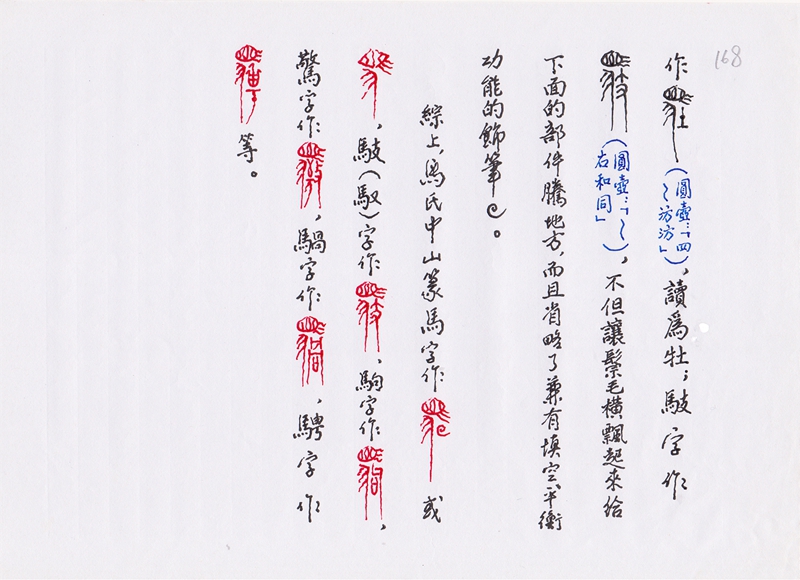 168
作（圓壺：「四～汸汸」），讀爲牡；駊字作
（圓壺：「～右和同」），不但讓鬃毛橫飄起來給
下面的部件騰地方，而且省略了兼有填空、平衡
功能的飾筆。
綜上，馬氏中山篆馬字作或
，駊（馭）字作，駒字作，
驚字作，騧字作，騁字作
等。